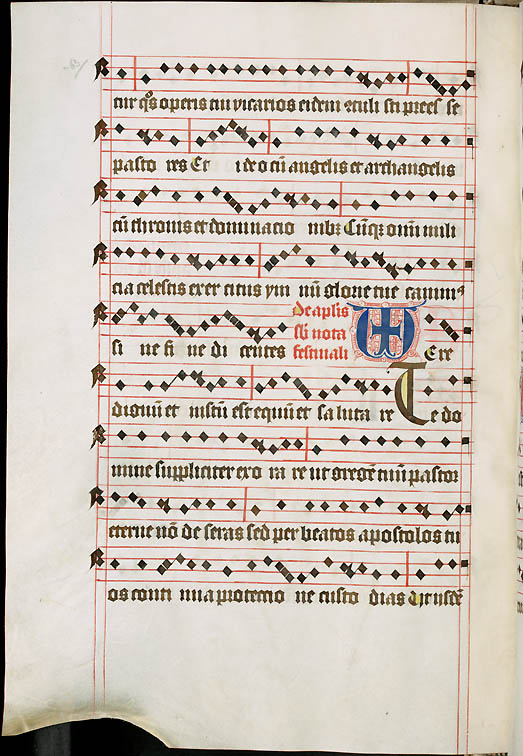 tur q̄s operis tui vicarios eidem ɔtuli sti p̄ees se
pasto res Et ideo cū angelis et archangelis
cū thronis et dominatio nibꝫ Cūqꝫ omī mili
cia celestis exer citus ym nū glorie tue canim⁹
de aplis
si ne fi ne di centes sb nota
festiuali Ere
dignū et iustū est equū et sa luta re Te do
mine suppliciter exo ra re ut gregē tuū pastor
eterne nō de seras sed per beatos apostolos tu
os conti nua protectio ne custo dias